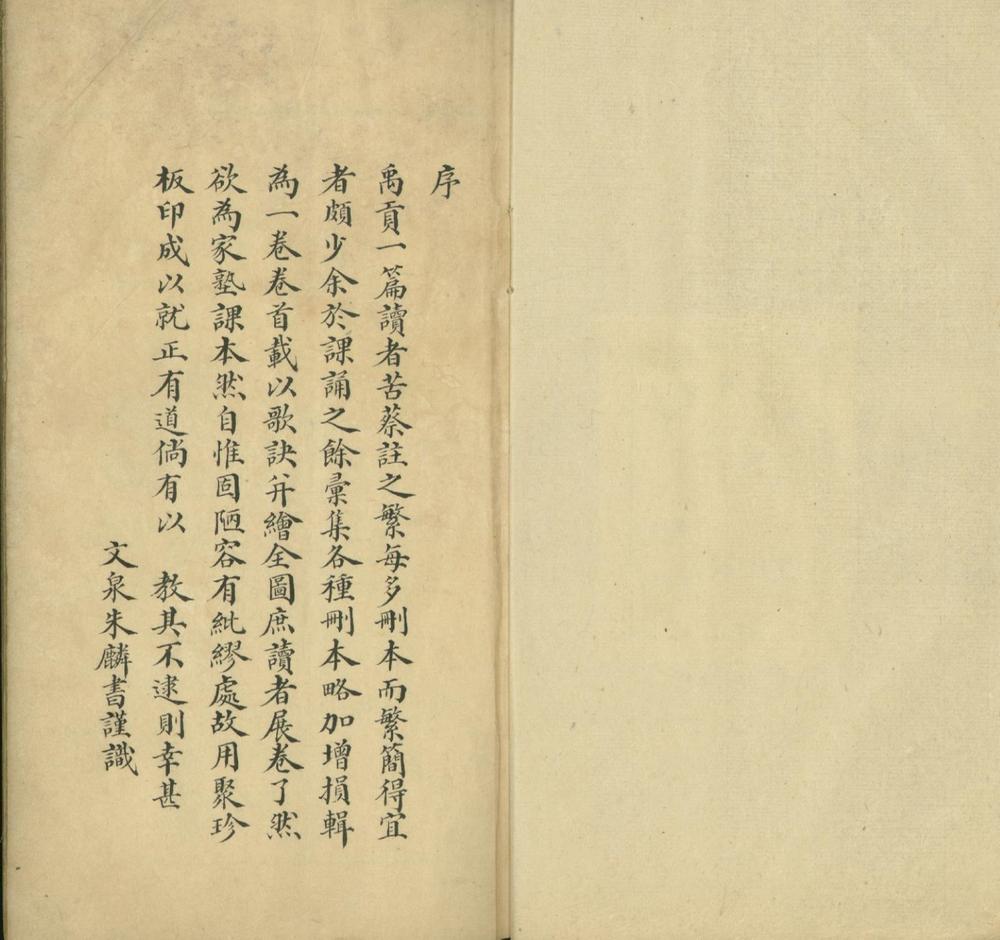 序
禹貢一篇讀者苦蔡註之繁每多刪本而繁簡得宜
者頗少余於課誦之餘彙集各種刪本略加增損輯
為一卷卷首載以歌訣并繪全圖庶讀者展卷了然
欲為家塾課本然自惟固陋容有紕繆處故用聚珍
板印成以就正有道倘有以　教其不逮則幸甚
文泉朱麟書謹識